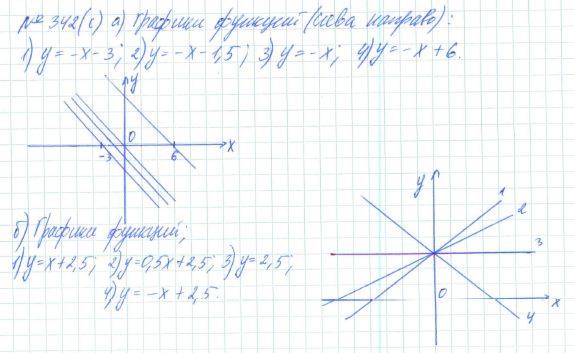 № 342(с) а) Графики функций (слева направо):
1) y = -x - 3; 2) y = -x - 1,5; 3) y = -x; 4) y = -x + 6.
y
0
x
-3
6
б) Графики функций;
1) y = x + 2,5; 2) y = 0,5x + 2,5; 3) y = 2,5;
4) y = -x + 2,5.
y
1
2
3
0
x
4